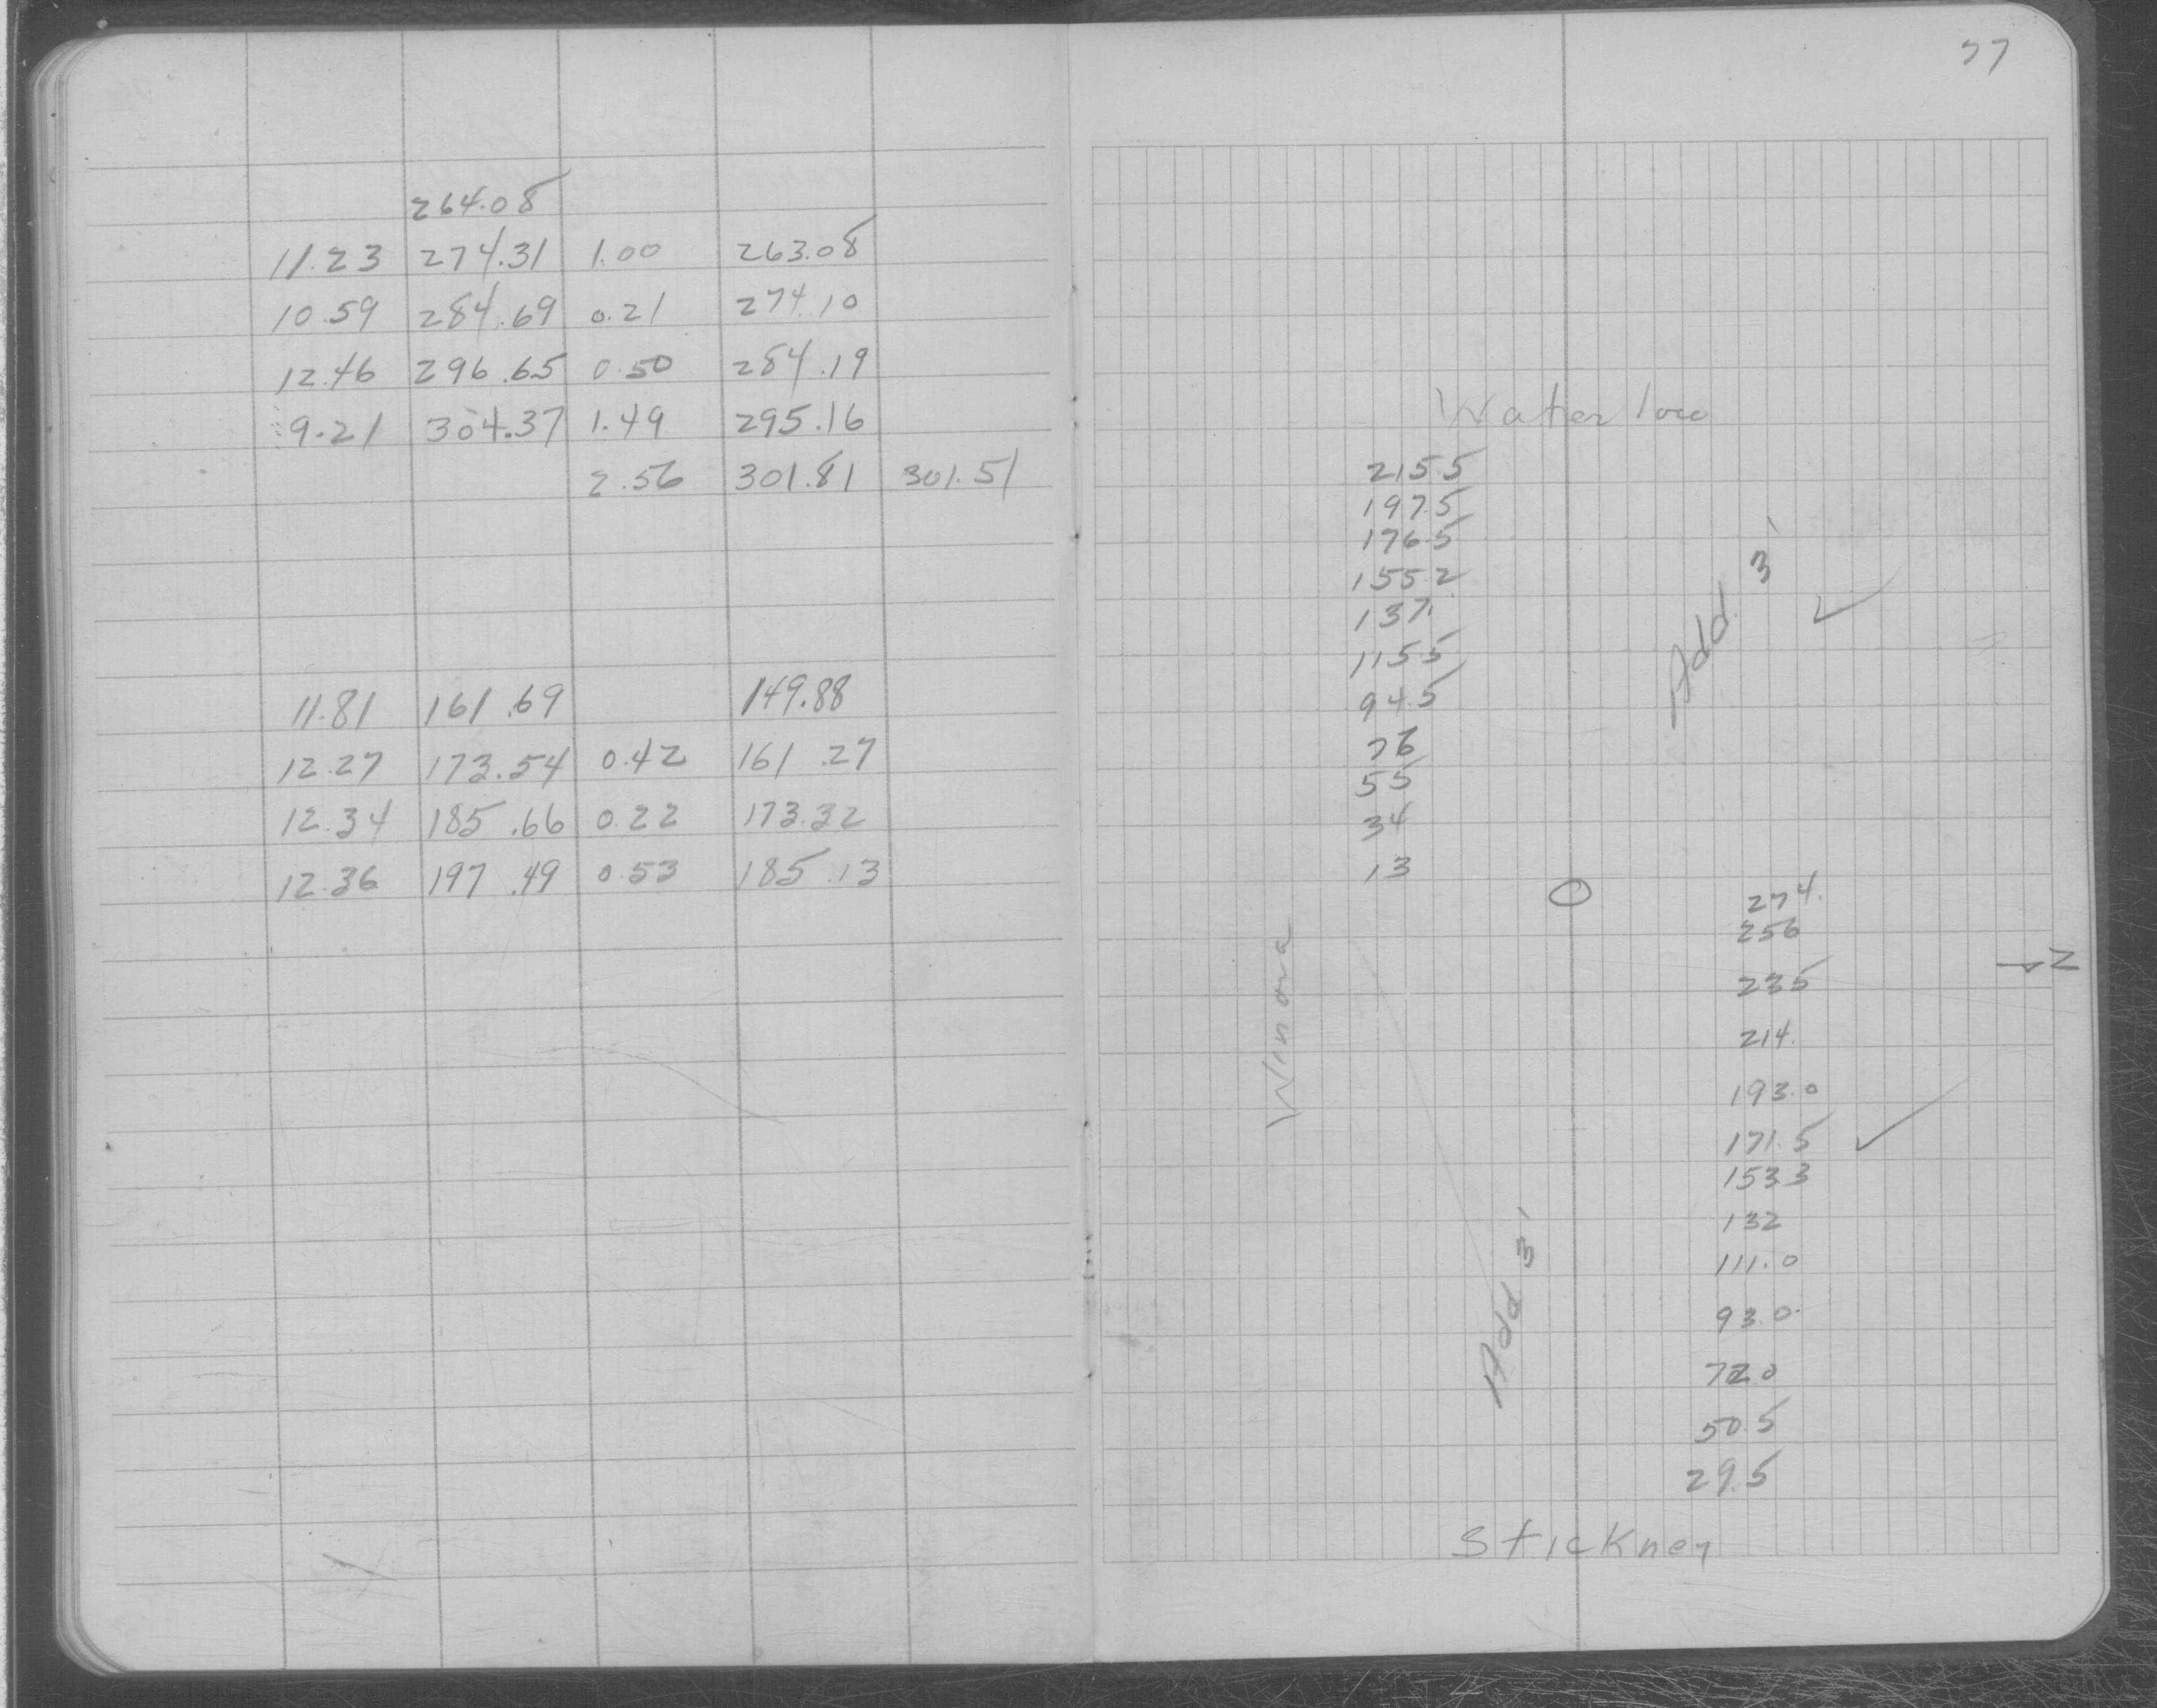 264.08
11.23 274.31 1.00 263.08
10.59 284.69 0.21 274.10
12.46 296.65 0.50 284.19
9.21 304.37 1.49 295.16
2.56 301.81 301.51
11.81 161.69 149.88
12.27 173.54 0.42 161.27
12.34 185.66 0.22 173.32
12.36 197.49 0.53 185.13
77
Waterloo
215.5
197.5
176.5
155.2
137.
115.5
94.5
76
55
34
13
Add 3'
Winona
274.
256
235
214.
193.0
171.5
153.3
132
111.0
93.0
72.0
50.5
29.5
N
Add 3'
Stickney